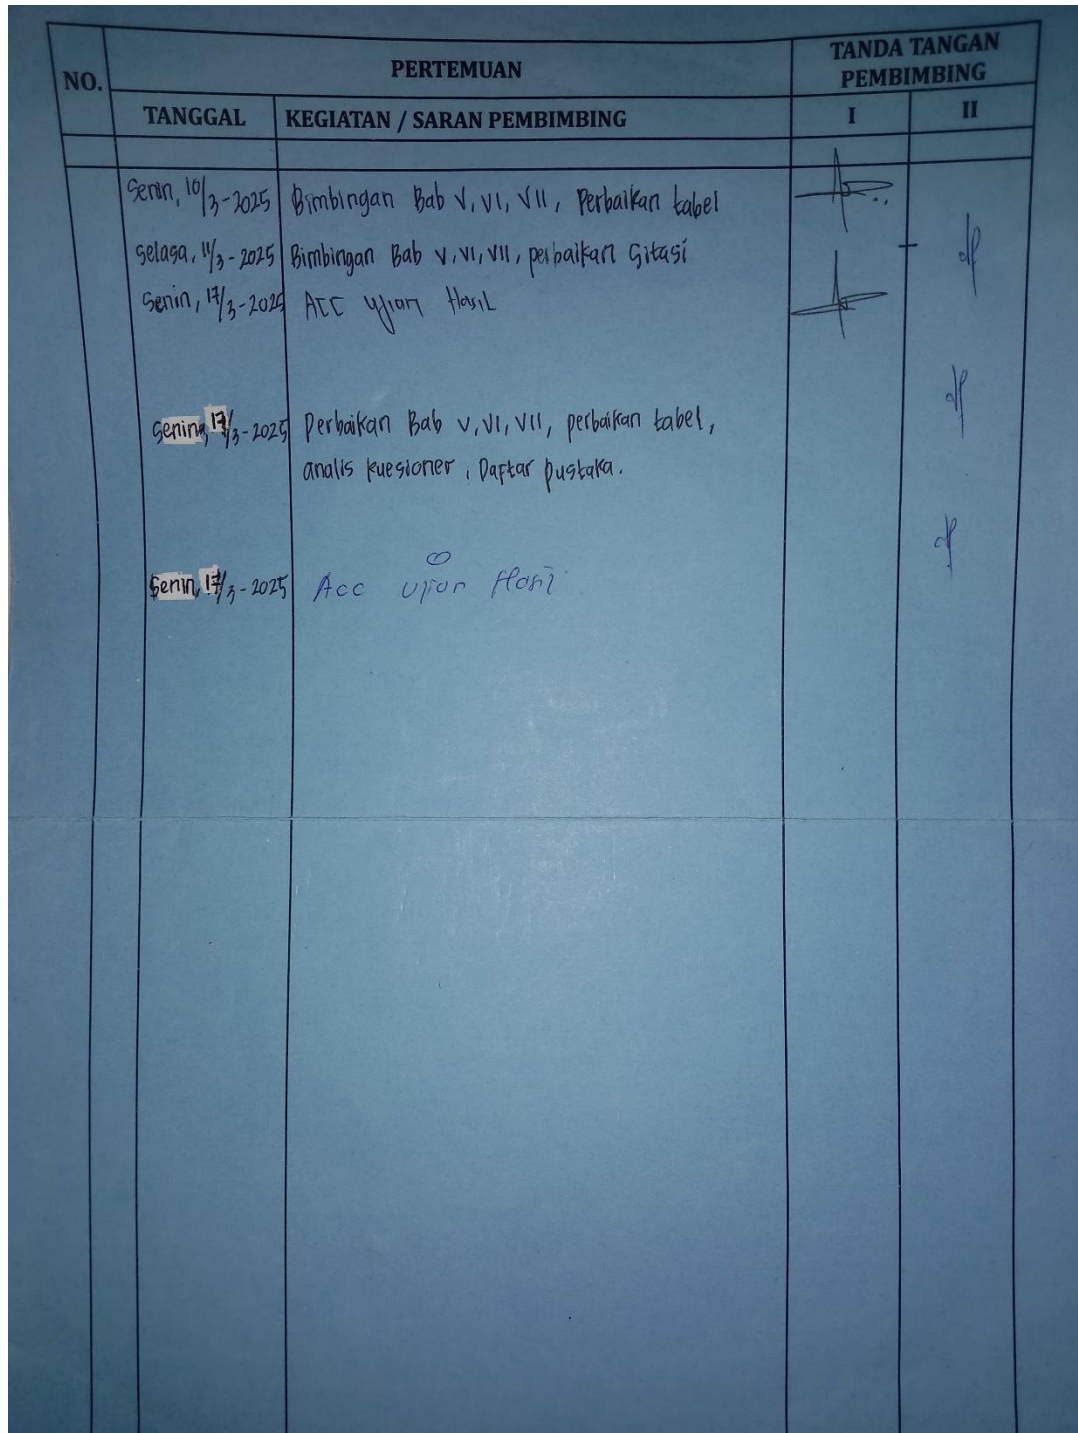 NO.
PERTEMUAN
TANDA TANGAN
PEMBIMBING
TANGGAL
KEGIATAN / SARAN PEMBIMBING
I
II
Senin, 10/3-2025 Bimbingan Bab V, VI, VII, Perbaikan tabel
Selasa, 11/3-2025 Bimbingan Bab V, VI, VII, perbaikan Sitasi
Senin, 17/3-2025 ACC Ujian Hasil
Senin, 17/3-2025 Perbaikan Bab V, VI, VII, perbaikan tabel,
analis kuesioner, Daftar pustaka.
Senin, 17/3-2025 Acc Ujian Hasil